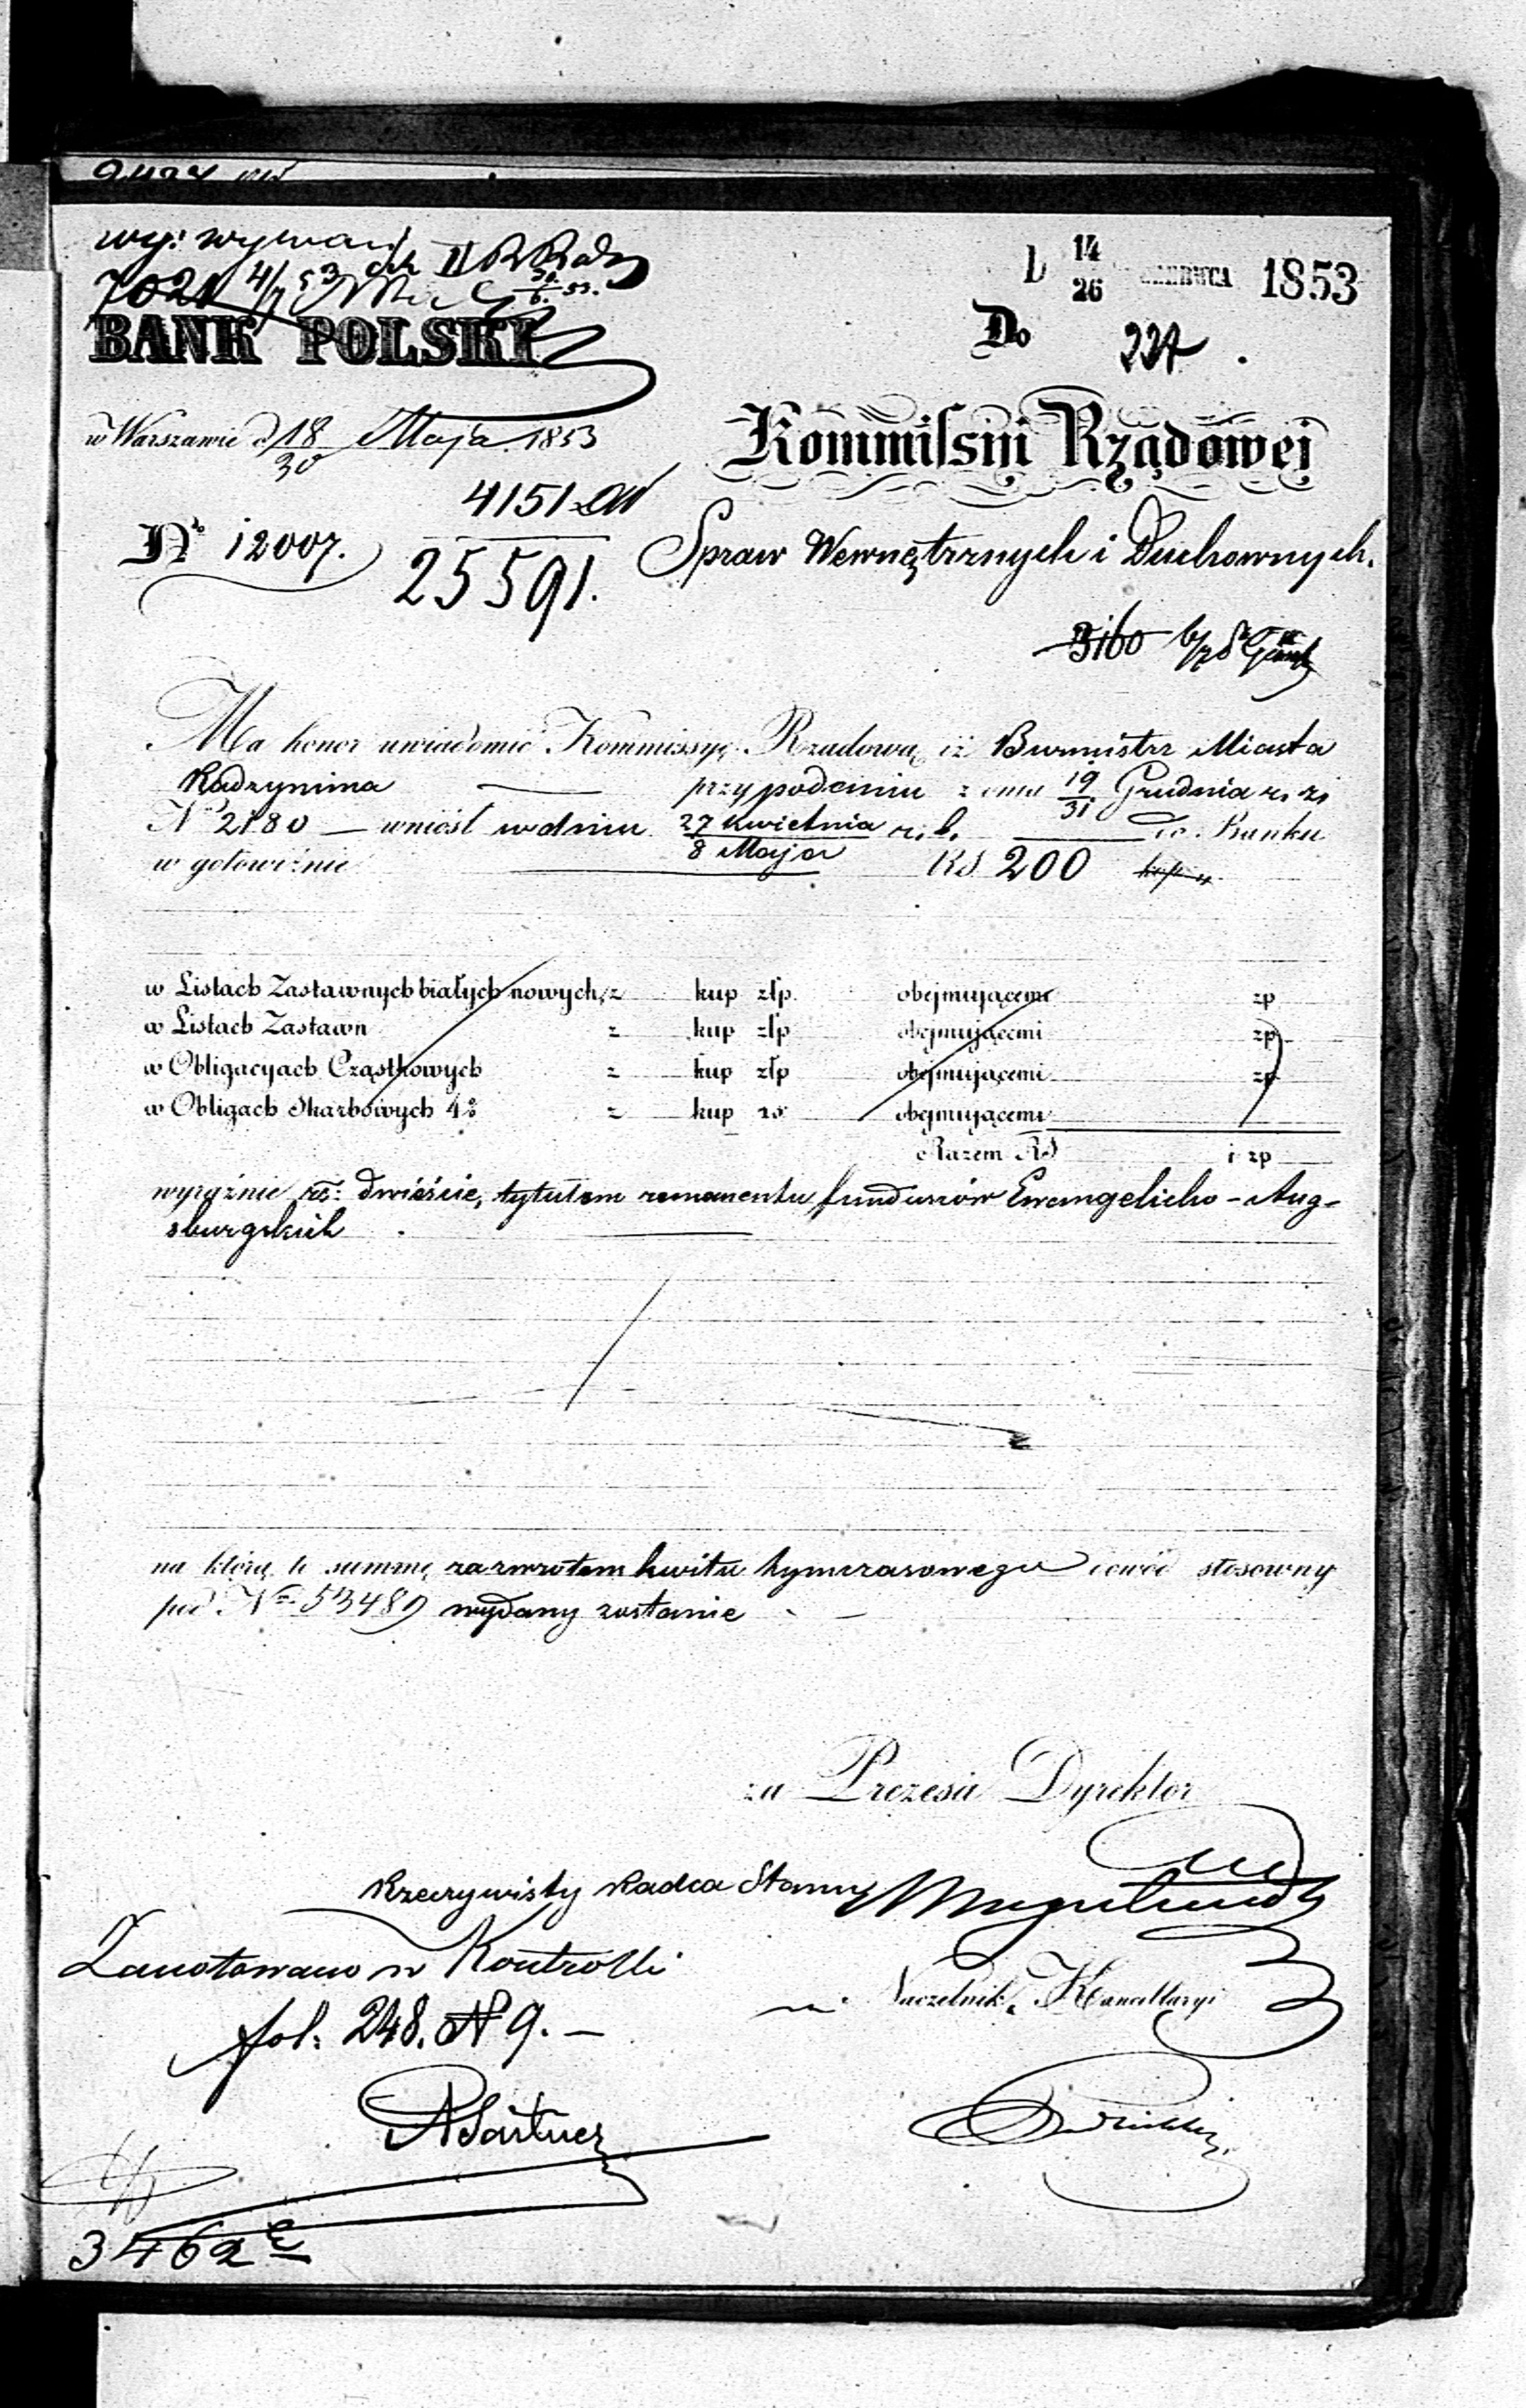 14/26 CZERWCA 1853
BANK POLSKI
Do
w Warszawie d 18/30 Maja 1853
Kommissyi Rządowej
4151
No 12007.
25591.
Spraw Wewnętrznych i Duchownych.
3160
Ma honor uwiadomić Kommissyę Rządową iż Burmistrz Miasta
Radzymina przy podaniu z dnia 19/31 Grudnia r. z.
No 2180 — wniósł w dniu 27 Kwietnia/8 Maja r. b. do Banku
w gotowiźnie RS 200 kop "
w Listach Zastawnych białych nowych z kup złp obejmującemi zp
w Listach Zastawn z kup złp obejmującemi zp
w Obligacyach Cząstkowych z kup złp obejmującemi zp
w Obligach Skarbowych 4% z kup rs obejmującemi
Razem RS i zp
wyraźnie rs: dwieście, tytułem remanentu funduszów Ewangelicko-Aug-
sburgskich
na którą to summę za zwrotem kwitu tymczasowego dowód stosowny
pod No 53489 wydany zostanie
za Prezesa Dyrektor
Rzeczywisty Radca Stanu
Zanotowano w Kontrolli
Naczelnik Kancellaryi
fol: 248. N 9. —
3462